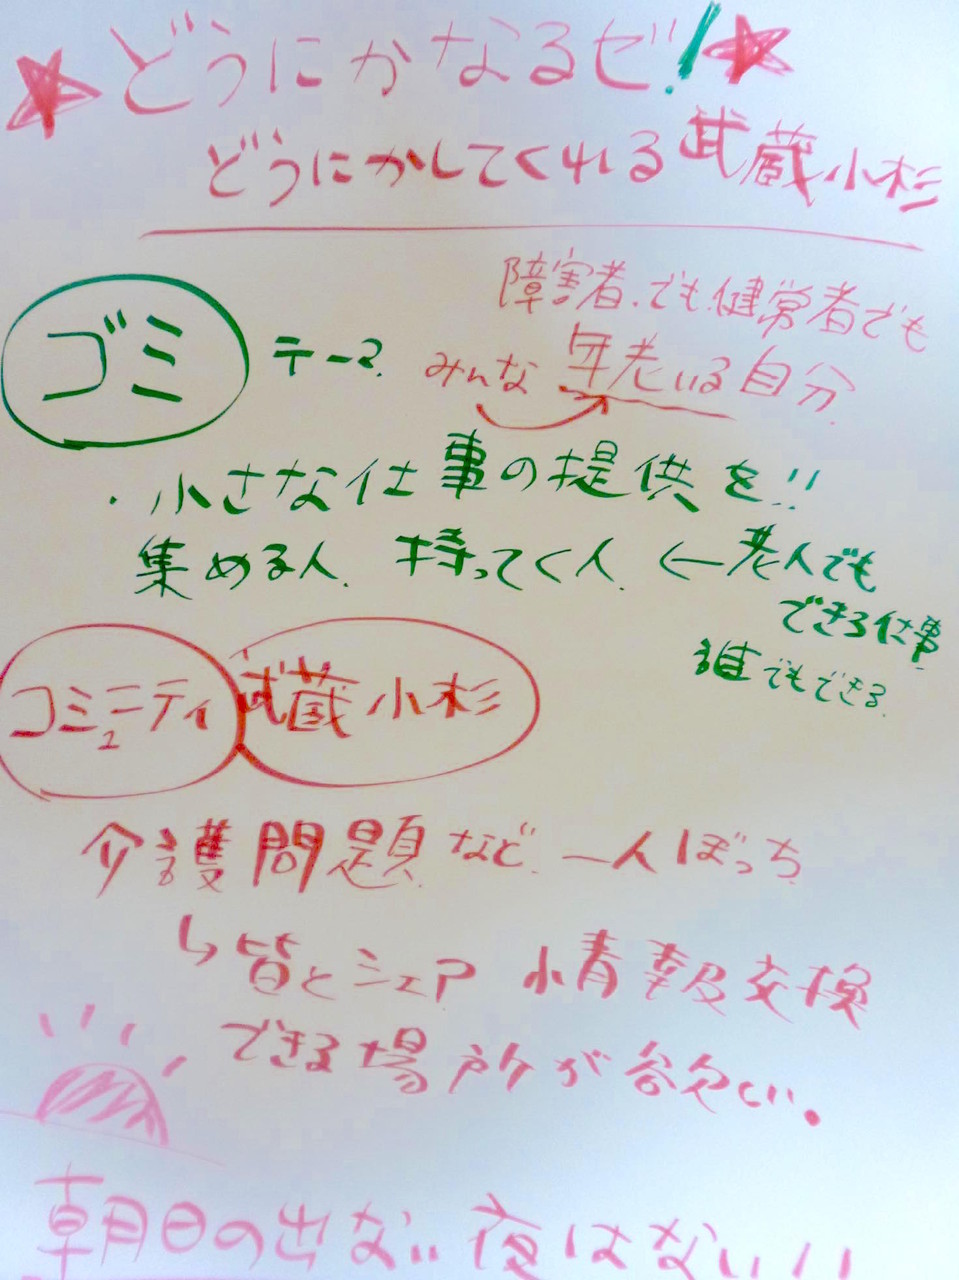 ★どうにかなるゼ!★
どうにかしてくれる武蔵小杉
障害者、でも、健常者でも
ゴミ テーマ、みんな年老いる自分
・小さな仕事の提供を!!
集める人、持ってく人、←老人でも
できる仕事
誰でもできる
コミュニティ 武蔵小杉
介護問題など、一人ぼっち
↳皆とシェア 情報交換
できる場所が欲しい。
朝日の出ない夜はない!!